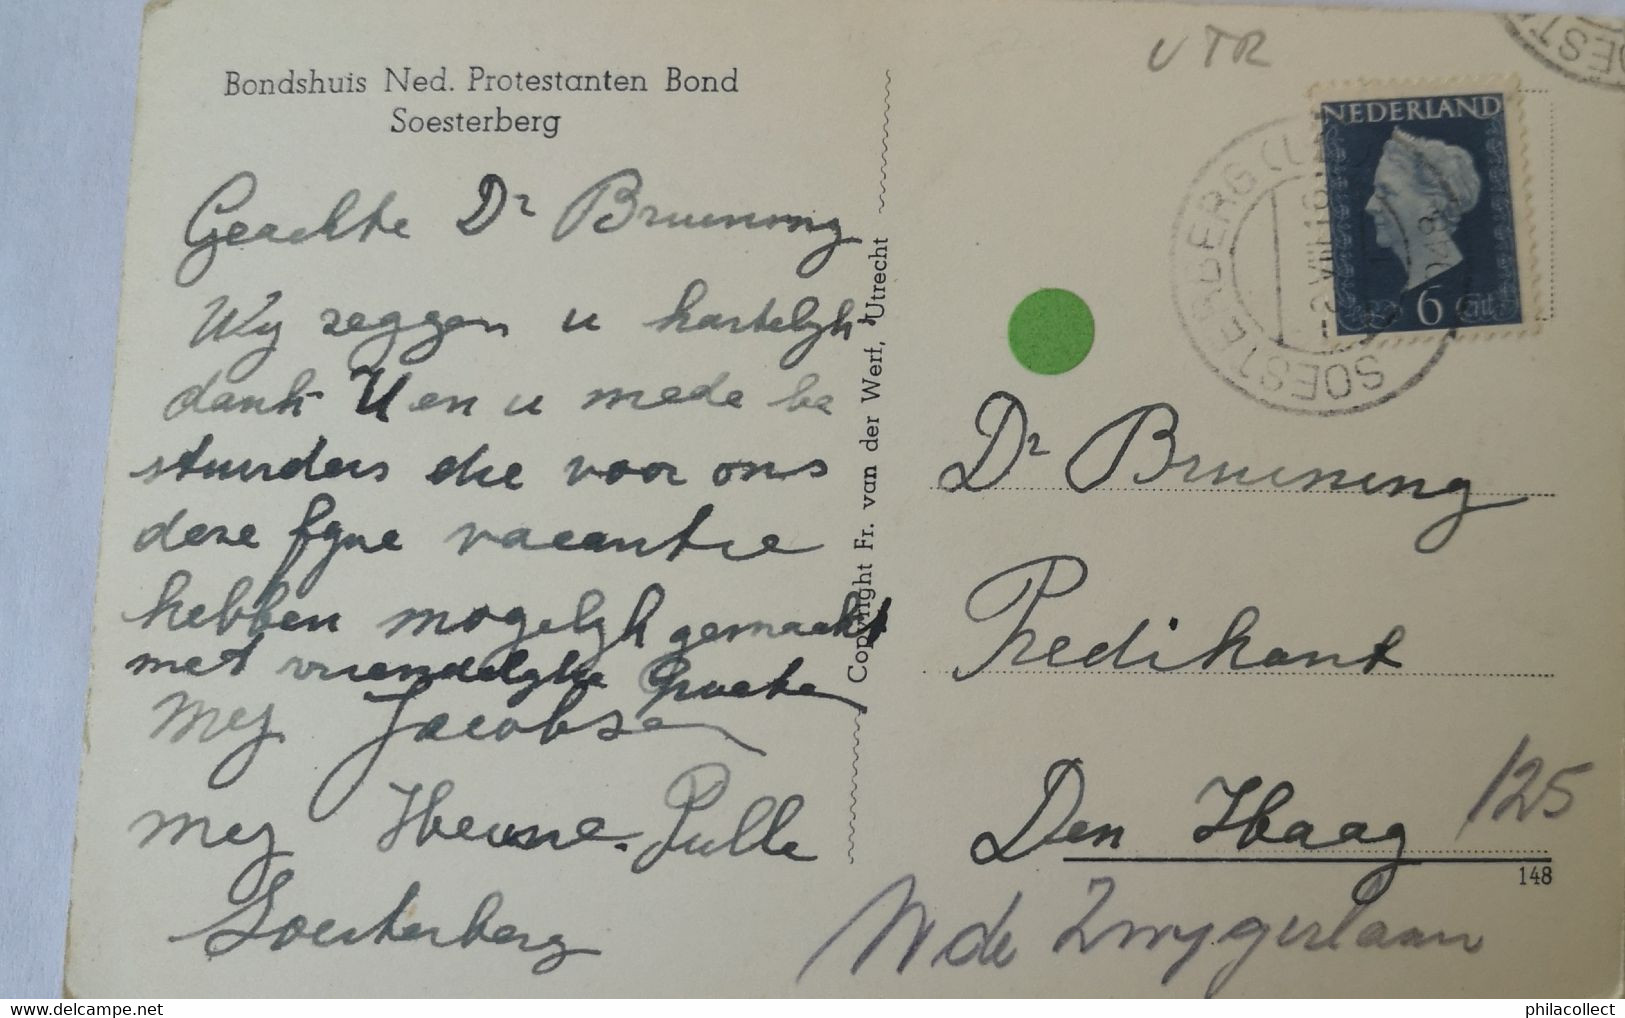 Bondshuis Ned. Protestanten Bond
Soesterberg
Geachte Dr Bruining
Wij zeggen u hartelijk
dank U en u mede be
stuurders die voor ons
deze fijne vacantie
hebben mogelijk gemaakt
met vriendelijke Groete
Mej Jacobse
mej Heune. Pulle
Soesterberg
Copyright Fr. van der Werf, Utrecht
UTR
NEDERLAND
6 cnt
SOESTERBERG
SOEST
Dr Bruining
Predikant
Den Haag
125
148
W de Zwijgerlaan
philacollect